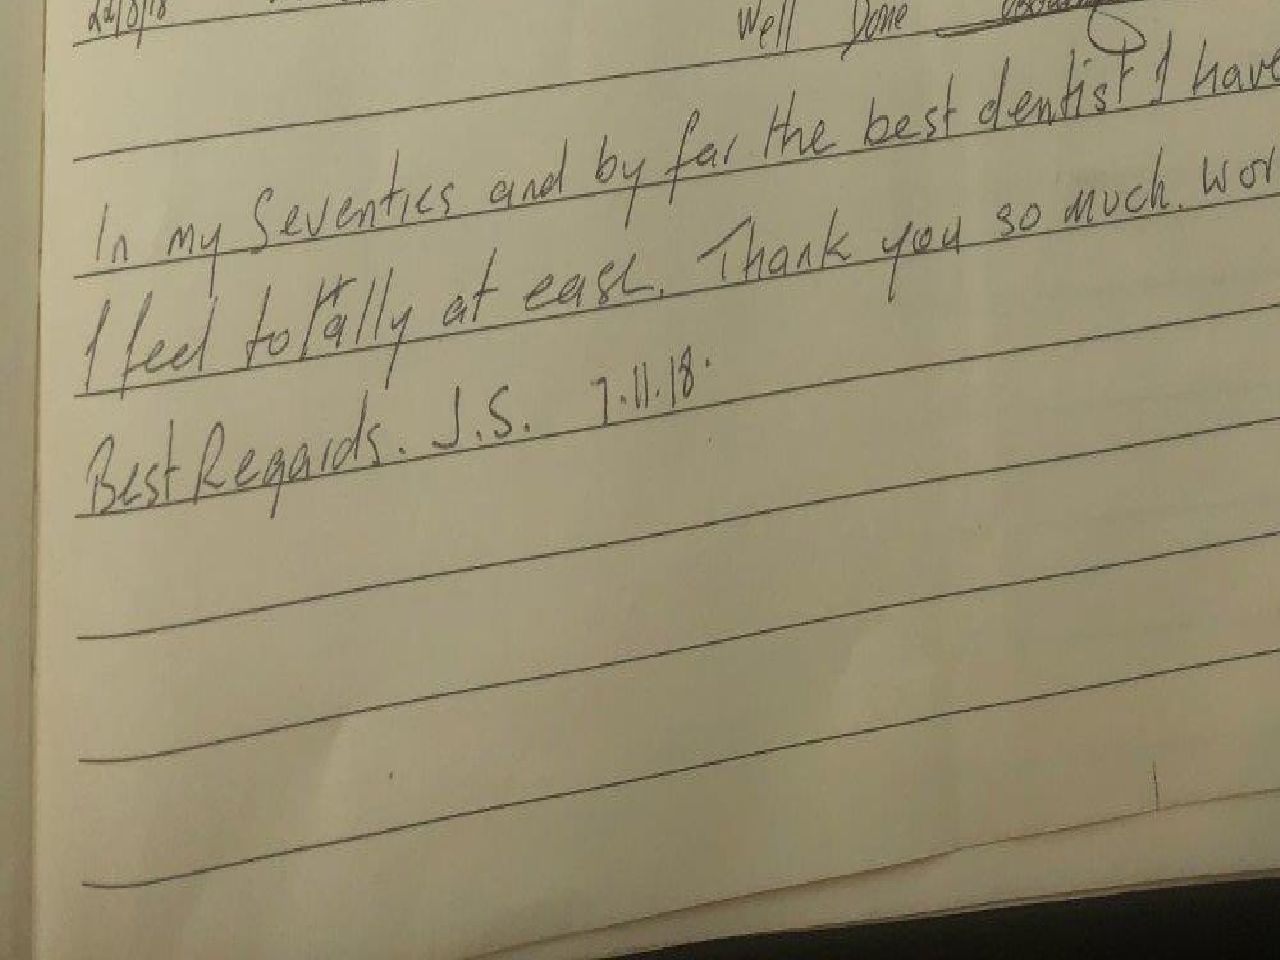 22/8/18
Well Done
In my Seventies and by far the best dentist I have
I feel totally at ease. Thank you so much. Wor
Best Regards. J.S. 7.11.18.